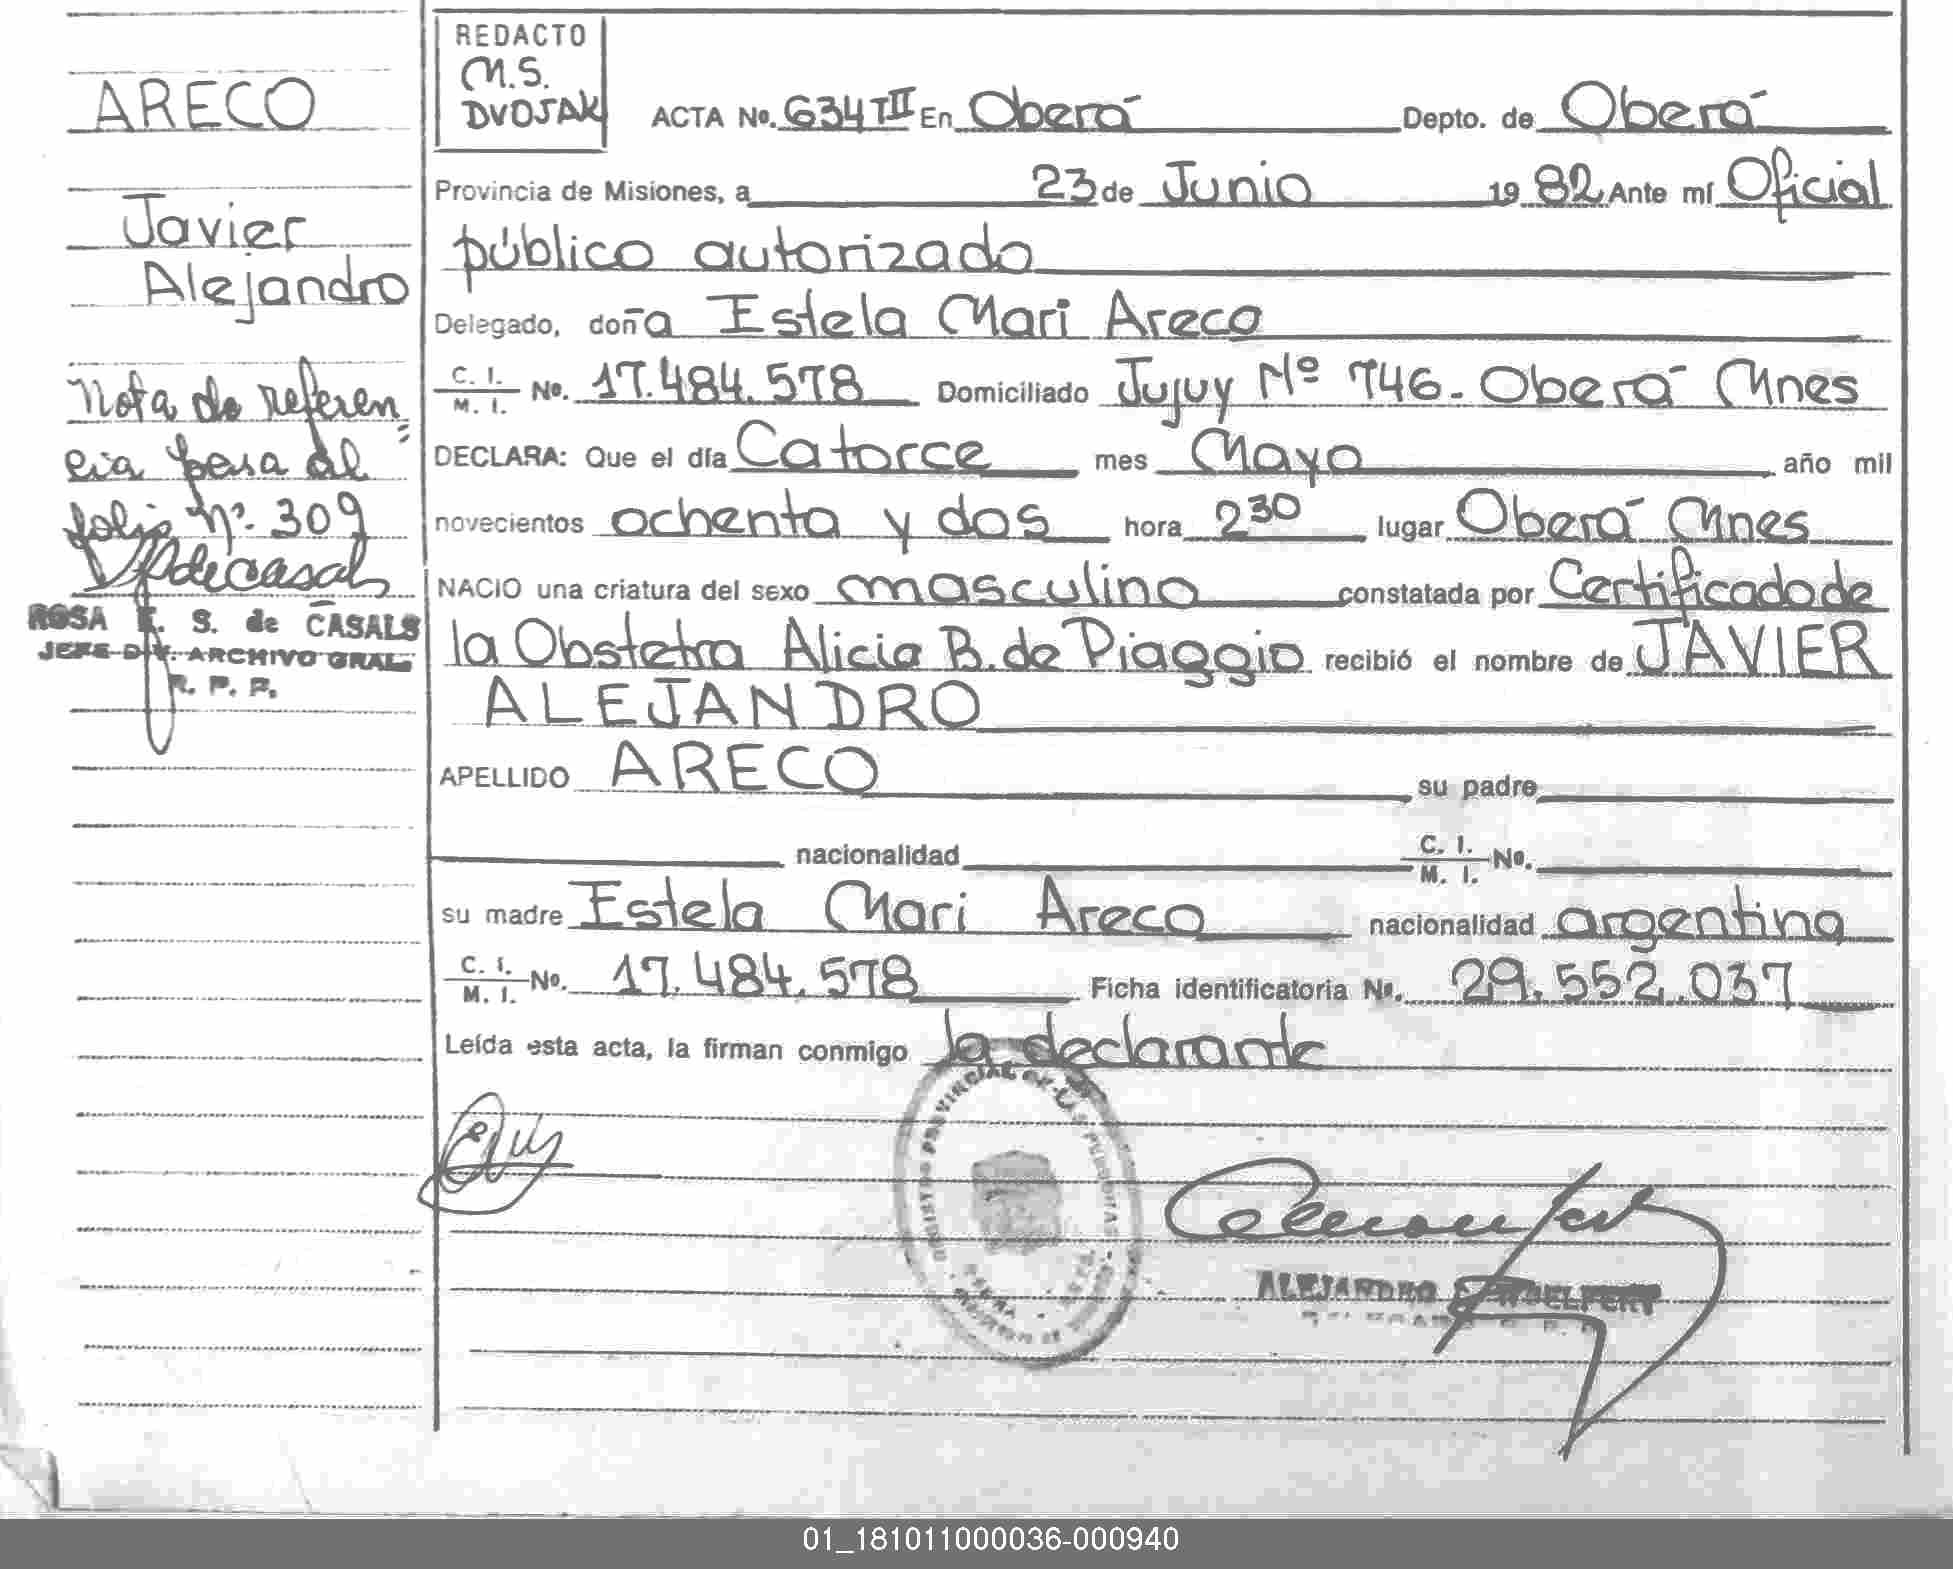 ARECO
Javier
Alejandro
Nota de referen
cia pasa al
folio Nº. 309
ROSA E. S. de CASALS
JEFE DIV. ARCHIVO GRAL.
R. P. P.
REDACTO
M.S.
DVOJAK
ACTA No. 634 TII En Oberá Depto. de Oberá
Provincia de Misiones, a 23 de Junio 19 82 Ante mí Oficial
público autorizado
Delegado, doña Estela Mari Areco
C. I. / M. I. No. 17.484.578 Domiciliado Jujuy Nº 746 - Oberá Mnes
DECLARA: Que el día Catorce mes Mayo año mil
novecientos ochenta y dos hora 2 30 lugar Oberá Mnes
NACIO una criatura del sexo masculino constatada por Certificado de
la Obstetra Alicia B. de Piaggio recibió el nombre de JAVIER
ALEJANDRO
APELLIDO ARECO su padre
nacionalidad C. I. / M. I. No.
su madre Estela Mari Areco nacionalidad argentina
C. I. / M. I. No. 17.484.578 Ficha identificatoria No. 29.552.037
Leída esta acta, la firman conmigo la declarante
REGISTRO PROVINCIAL DE LAS PERSONAS
ALEJANDRO
01_181011000036-000940